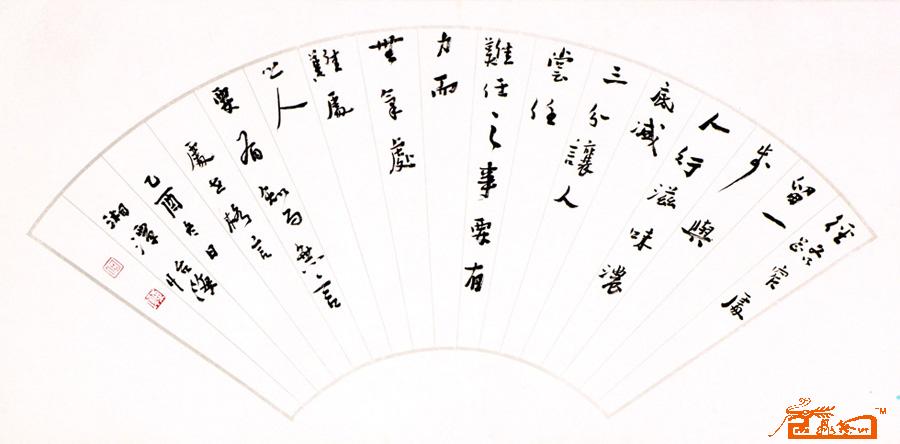 徑路窄處
留一
步與
人行滋味濃
底減
三分讓人
嘗任
難任之事要有
力而
無氣處
難處
之人
要有知而無言
處世格言
乙酉冬日
湘潭